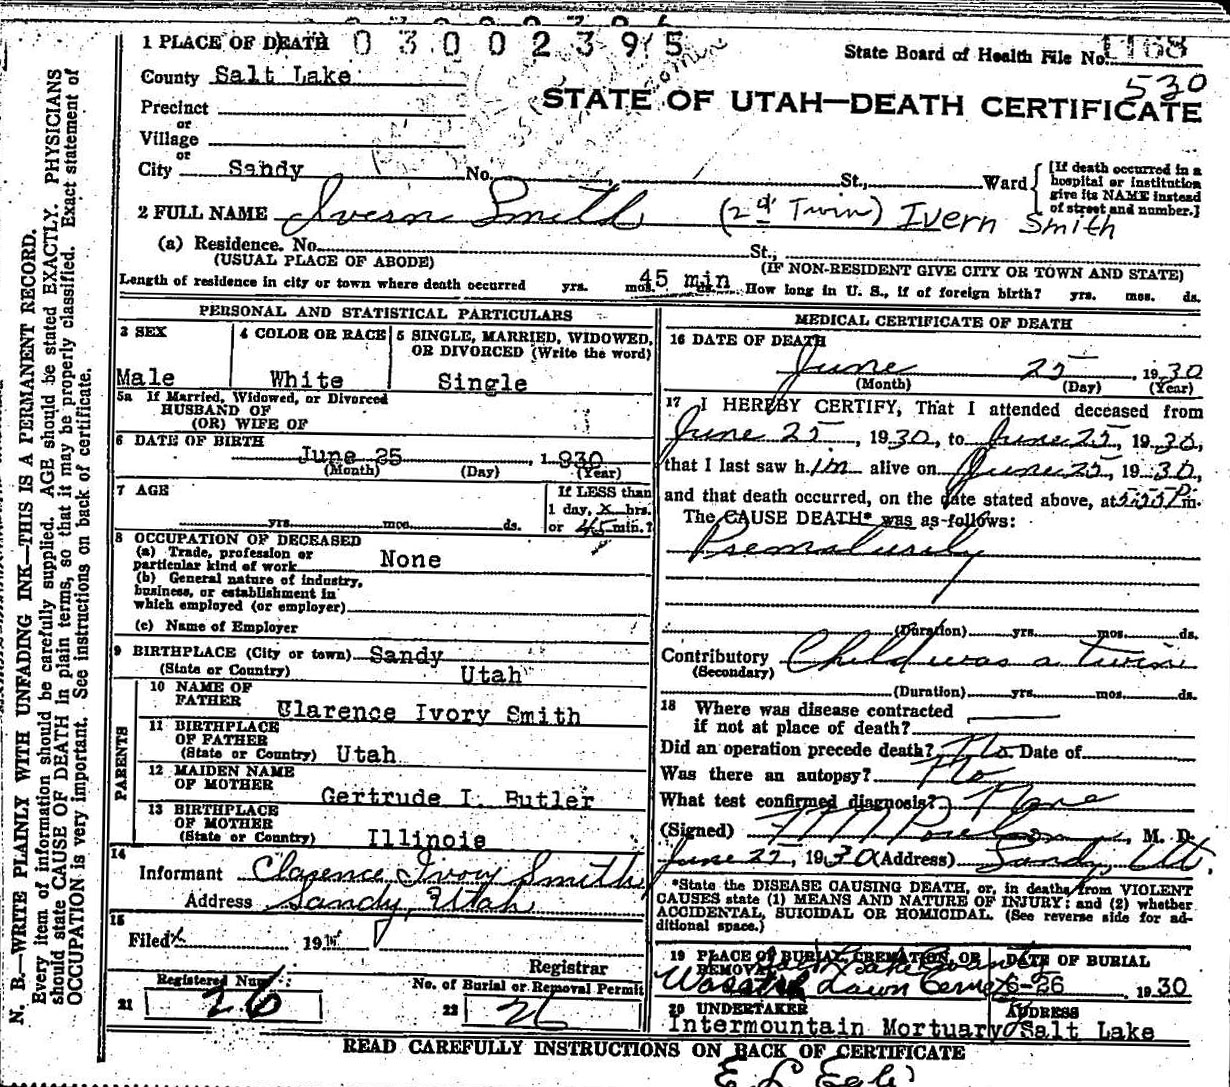 0 3 0 0 2 3 9 5
1 PLACE OF DEATH
State Board of Health File No. 1168
530
County Salt Lake
STATE OF UTAH—DEATH CERTIFICATE
Precinct
or
Village
or
City Sandy No. St., Ward
[If death occurred in a hospital or institution give its NAME instead of street and number.]
2 FULL NAME Ivern Smith (2d Twin) Ivern Smith
(a) Residence. No. St.,
(USUAL PLACE OF ABODE) (IF NON-RESIDENT GIVE CITY OR TOWN AND STATE)
Length of residence in city or town where death occurred yrs. mos. 45 min ds. How long in U. S., if of foreign birth? yrs. mos. ds.
PERSONAL AND STATISTICAL PARTICULARS
3 SEX
Male
4 COLOR OR RACE
White
5 SINGLE, MARRIED, WIDOWED, OR DIVORCED (Write the word)
Single
5a If Married, Widowed, or Divorced
HUSBAND OF
(OR) WIFE OF
6 DATE OF BIRTH
June 25, 1930
(Month) (Day) (Year)
7 AGE
yrs. mos. ds.
If LESS than
1 day, x hrs.
or 45 min.?
8 OCCUPATION OF DECEASED
(a) Trade, profession or
particular kind of work None
(b) General nature of industry,
business, or establishment in
which employed (or employer)
(c) Name of Employer
9 BIRTHPLACE (City or town) Sandy
(State or Country) Utah
PARENTS
10 NAME OF
FATHER Clarence Ivory Smith
11 BIRTHPLACE
OF FATHER
(State or Country) Utah
12 MAIDEN NAME
OF MOTHER Gertrude I. Butler
13 BIRTHPLACE
OF MOTHER
(State or Country) Illinois
14
Informant Clarence Ivory Smith
Address Sandy, Utah
15
Filed x 19
Registrar
Registered Num
21 26
No. of Burial or Removal Permit
22 26
MEDICAL CERTIFICATE OF DEATH
16 DATE OF DEATH
June 25, 1930
(Month) (Day) (Year)
17 I HEREBY CERTIFY, That I attended deceased from
June 25, 1930, to June 25, 1930,
that I last saw him alive on June 25, 1930,
and that death occurred, on the date stated above, at 5:55 P m.
The CAUSE DEATH* was as follows:
Prematurity
(Duration) yrs. mos. ds.
Contributory Child was a twin
(Secondary)
(Duration) yrs. mos. ds.
18 Where was disease contracted
if not at place of death?
Did an operation precede death? No Date of
Was there an autopsy? No
What test confirmed diagnosis? None
(Signed) M. D.
June 25, 1930 (Address) Sandy, Ut.
*State the DISEASE CAUSING DEATH, or, in deaths from VIOLENT
CAUSES state (1) MEANS AND NATURE OF INJURY; and (2) whether
ACCIDENTAL, SUICIDAL OR HOMICIDAL. (See reverse side for ad-
ditional space.)
19 PLACE OF BURIAL, CREMATION, OR
REMOVAL Salt Lake County
Wasatch Lawn Cemet
DATE OF BURIAL
6-26 1930
20 UNDERTAKER
Intermountain Mortuary
ADDRESS
Salt Lake
READ CAREFULLY INSTRUCTIONS ON BACK OF CERTIFICATE
N. B.—WRITE PLAINLY WITH UNFADING INK—THIS IS A PERMANENT RECORD.
Every item of information should be carefully supplied. AGE should be stated EXACTLY. PHYSICIANS
should state CAUSE OF DEATH in plain terms, so that it may be properly classified. Exact statement of
OCCUPATION is very important. See instructions on back of certificate.